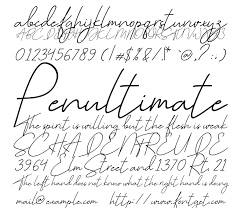 abcdefghijklmnopqrstuvwxyz
ABCDEFGHIJKLMNOPQRSTUVWXYZ
0123456789
Penultimate
The spirit is willing but the flesh is weak
SCHADENFREUDE
3964 Elm Street and 1370 Rt. 21
The left hand does not know what the right hand is doing
mail@example.com http://www.fontget.com